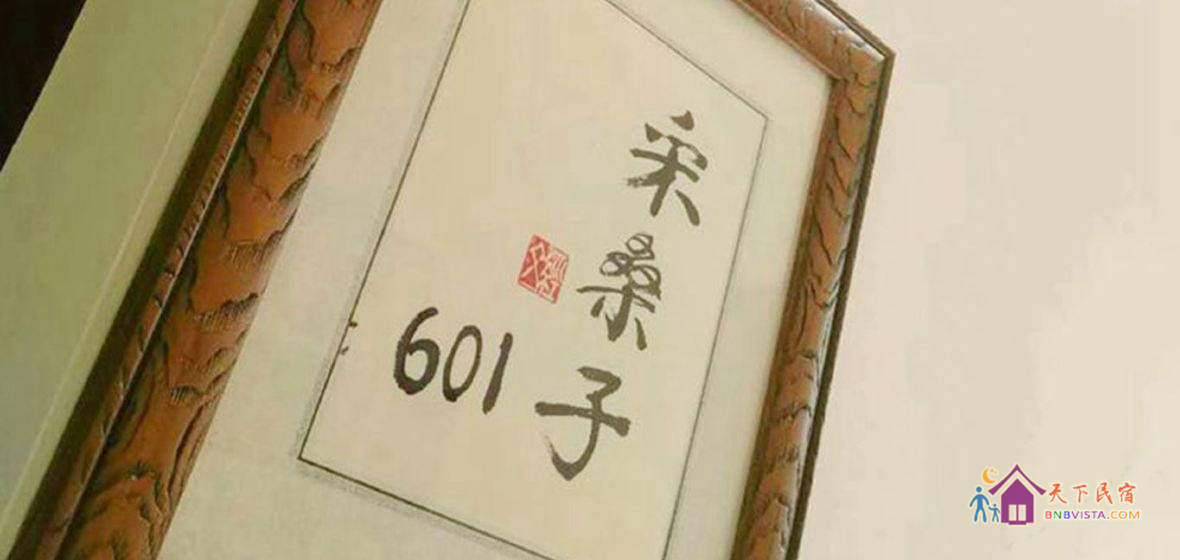 采桑子
601
天下民宿
BNBVISTA.COM